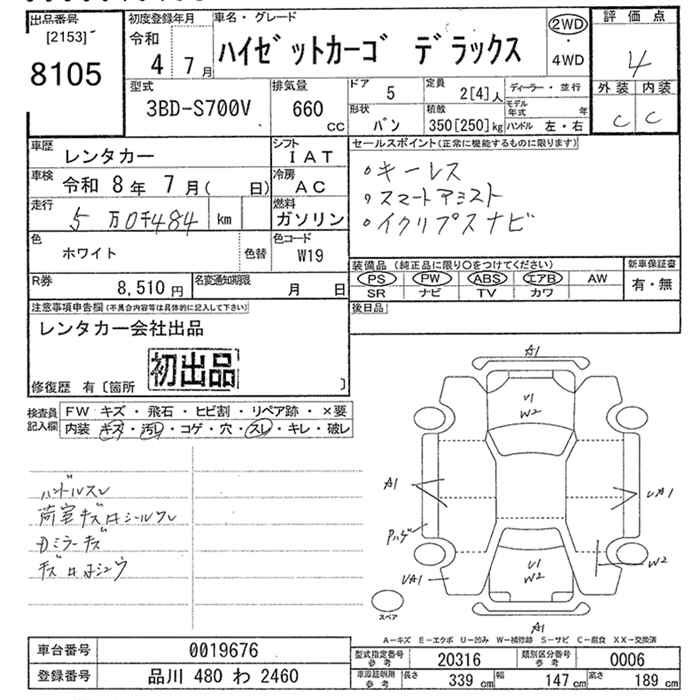 出品番号
[2153]
8105
初度登録年月
令和
4 7月
車名・グレード
ハイゼットカーゴ デラックス
2WD
・
4WD
評価点
4
外装 内装
C C
型式
3BD-S700V
排気量
660
cc
ドア
5
定員
2[4]人
ディーラー・並行
形状
バン
積載
350[250]kg
モデル年式 年
ハンドル 左・右
車歴
レンタカー
シフト
IAT
車検
令和 8年 7月( 日)
冷房
AC
走行
5万0千484 km
燃料
ガソリン
色
ホワイト
色替
色コード
W19
R券
8,510円
名変通知期限
月 日
セールスポイント(正常に機能するものに限ります)
・キーレス
・スマートアシスト
・イクリプスナビ
装備品 (純正品に限り〇をつけてください)
PS PW ABS エアB AW
SR ナビ TV カワ
新車保証書
有・無
後日品
注意事項申告欄(不具合内容等は具体的に記入して下さい)
レンタカー会社出品
初出品
修復歴 有〔箇所 〕
検査員記入欄
FW キズ・飛石・ヒビ割・リペア跡・×要
内装 キズ・汚レ・コゲ・穴・スレ・キレ・破レ
ハンドルスレ
荷室キズ
ミラーキズ
A1
U1
W2
A1
UA1
Pハゲ
UA1
U1
W2
W2
A1
スペア
A−キズ E−エクボ U−凹み W−補修跡 S−サビ C−腐食 XX−交換済
車台番号
0019676
登録番号
品川 480 わ 2460
型式指定番号
参考
20316
類別区分番号
参考
0006
車庫証明用
参考
長さ
339 cm
幅
147 cm
高さ
189 cm